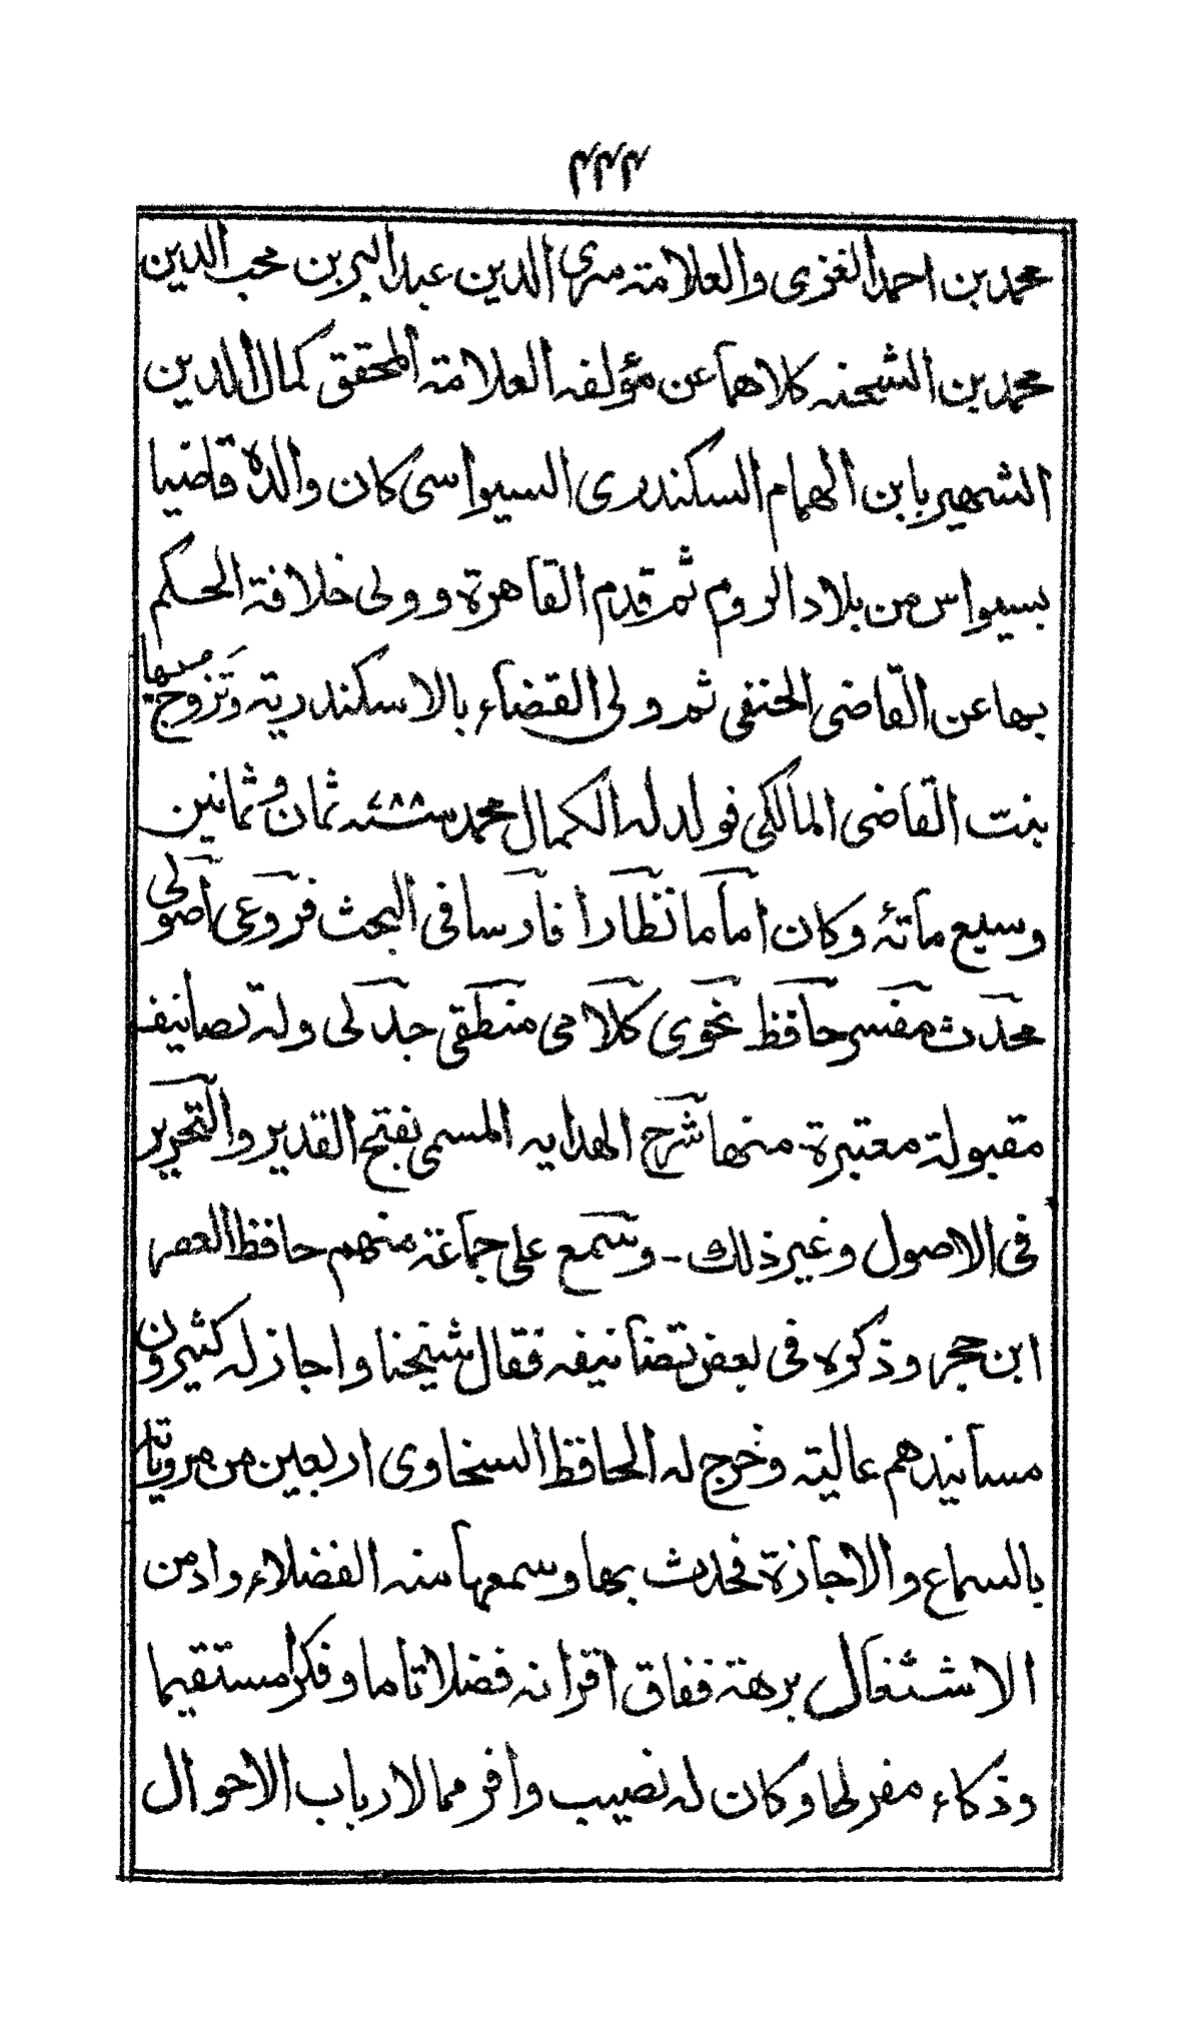 ۴۴۴
محمد بن احمد الغزى والعلامة سرى الدين عبد البر بن محب الدين
محمد بن الشحنه كلاهما عن مؤلفه العلامة المحقق كمال الدين
الشهير بابن الهمام السكندرى السيواسى كان والده قاضيا
بسيواس من بلاد الروم ثم قدم القاهرة وولى خلافة الحكم
بها عن القاضى الحنفى ثم ولى القضاء بالاسكندرية وتزوج بها
بنت القاضى المالكى فولد له الكمال محمد سنة ٧٨٨ ثمان وثمانين
وسبع مائة وكان اماما نظارا فارسا فى البحث فروعى اصولى
محدث مفسر حافظ نحوى كلامى منطقى جدلى وله تصانيف
مقبولة معتبرة منها شرح الهدايه المسمى بفتح القدير والتحرير
فى الاصول وغير ذلك ـ وسمع على جماعة منهم حافظ العصر
ابن حجر وذكره فى بعض تصانيفه فقال شيخنا واجاز له كثيرون
مسانيدهم عالية وخرج له الحافظ السخاوى اربعين من مروياته
بالسماع والاجازة فحدث بها وسمعها منه الفضلاء وادمن
الاشتغال برهة ففاق اقرانه فضلا تاما وفكرا مستقيما
وذكاء مفرطا وكان له نصيب وافر مما لارباب الاحوال